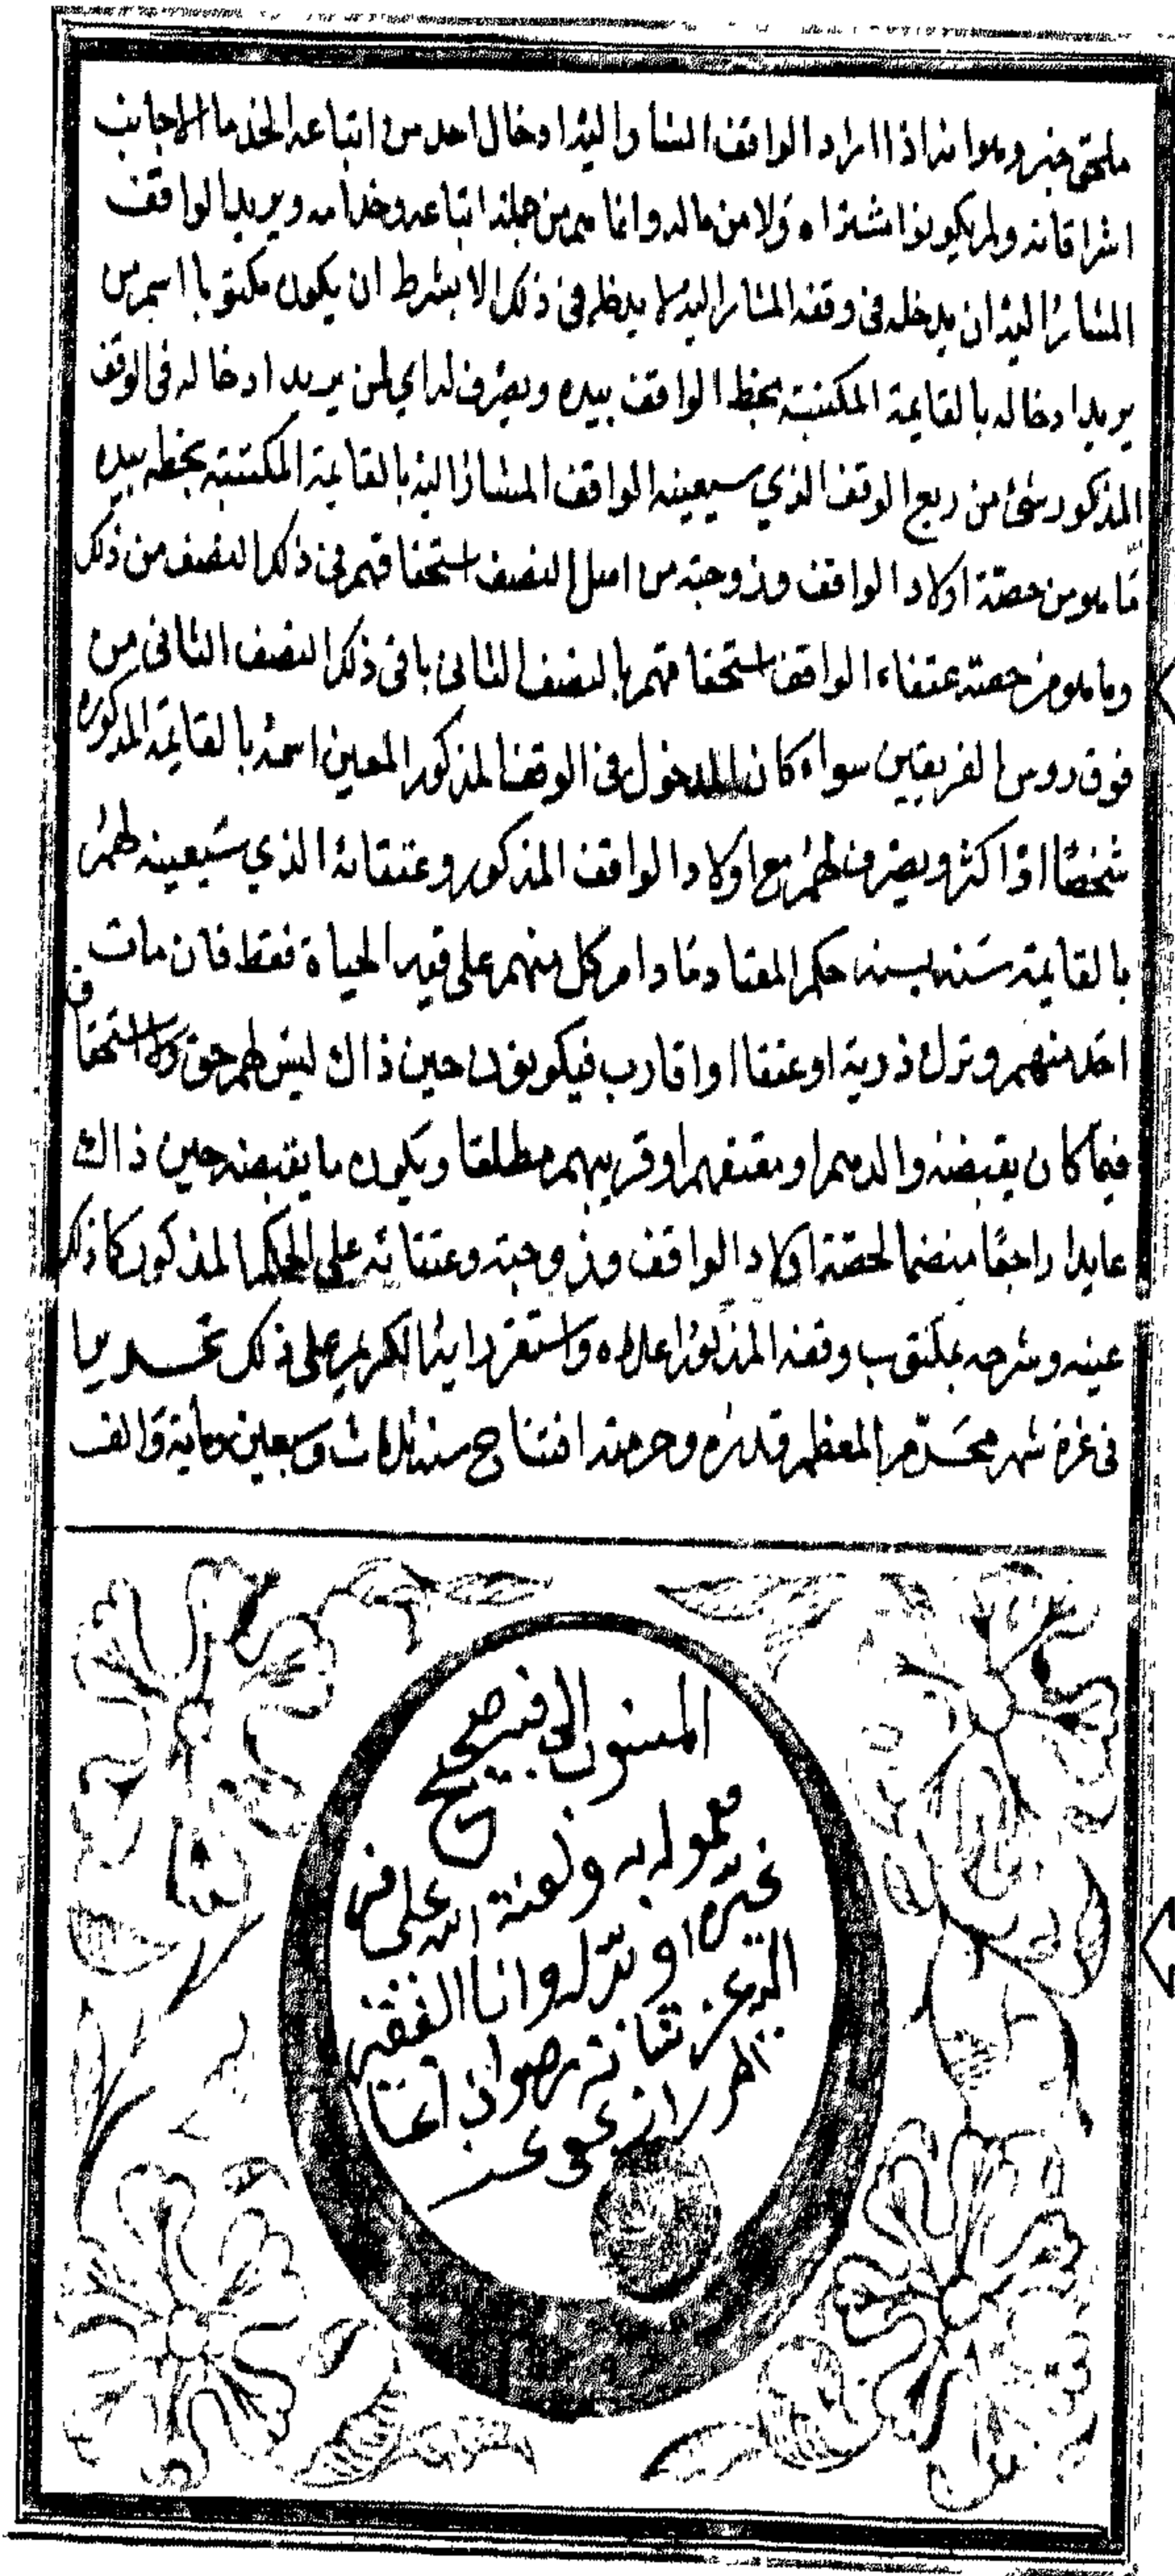 ملحق خير وهو انه اذا اراد الواقف المشار اليه ادخال احد من اتباعه الخدم الاجانب
اشراقاته ولم يكونوا مشتراه ولا من ماله وانما هم من جملة اتباعه وخدامه ويريد الواقف
المشار اليه ان يدخله في وقفه المشار اليه لا يدخل في ذلك الا بشرط ان يكون مكتوبا اسم من
يريد ادخاله بالقايمة المكتتبة بخط الواقف بيده ويصرف له اي لمن يريد ادخاله في الوقف
المذكور شئ من ريع الوقف الذي سيعينه الواقف المشار اليه بالقايمة المكتتبة بخطه بيده
ما هو من حصة اولاد الواقف وزوجته من اصل النصف استحقاقهم في ذلك النصف من ذلك
وما هو من حصة عتقاء الواقف استحقاقهم بالنصف الثاني باقي ذلك النصف الثاني من
فوق روس الفريقين سواء كان المدخول في الوقف المذكور المعين اسمه بالقايمة المذكوره
شخصا او اكثر ويصرف لهم مع اولاد الواقف المذكور وعتقائه الذي سيعينه لهم
بالقايمة سنه بسنه حكم المعتاد ما دام كل منهم على قيد الحياة فقط فان مات
احد منهم وترك ذرية او عتقا او اقارب فيكونون حين ذاك ليس لهم حق ولا استحقاق
فيما كان يقبضه والدهم او معتقهم او قريبهم مطلقا ويكون ما يقبضه حين ذاك
عايدا راجعا منضما لحصة اولاد الواقف وزوجته وعتقائه على الحكم المذكور كما ذلك
عينه وشرحه بمكتوب وقفه المذكور اعلاه واستقر رايه الكريم على ذلك تحريرا
في غرة شهر محرم المعظم قدره وحرمته افتتاح سنة ثلاث وسبعين وماية والف
المنسوب الى فيه صحيح
معمول به ولعنة الله على من
غيره او بدله وانا الفقير
اليه عز شانه رضوان اغا
الرزاز